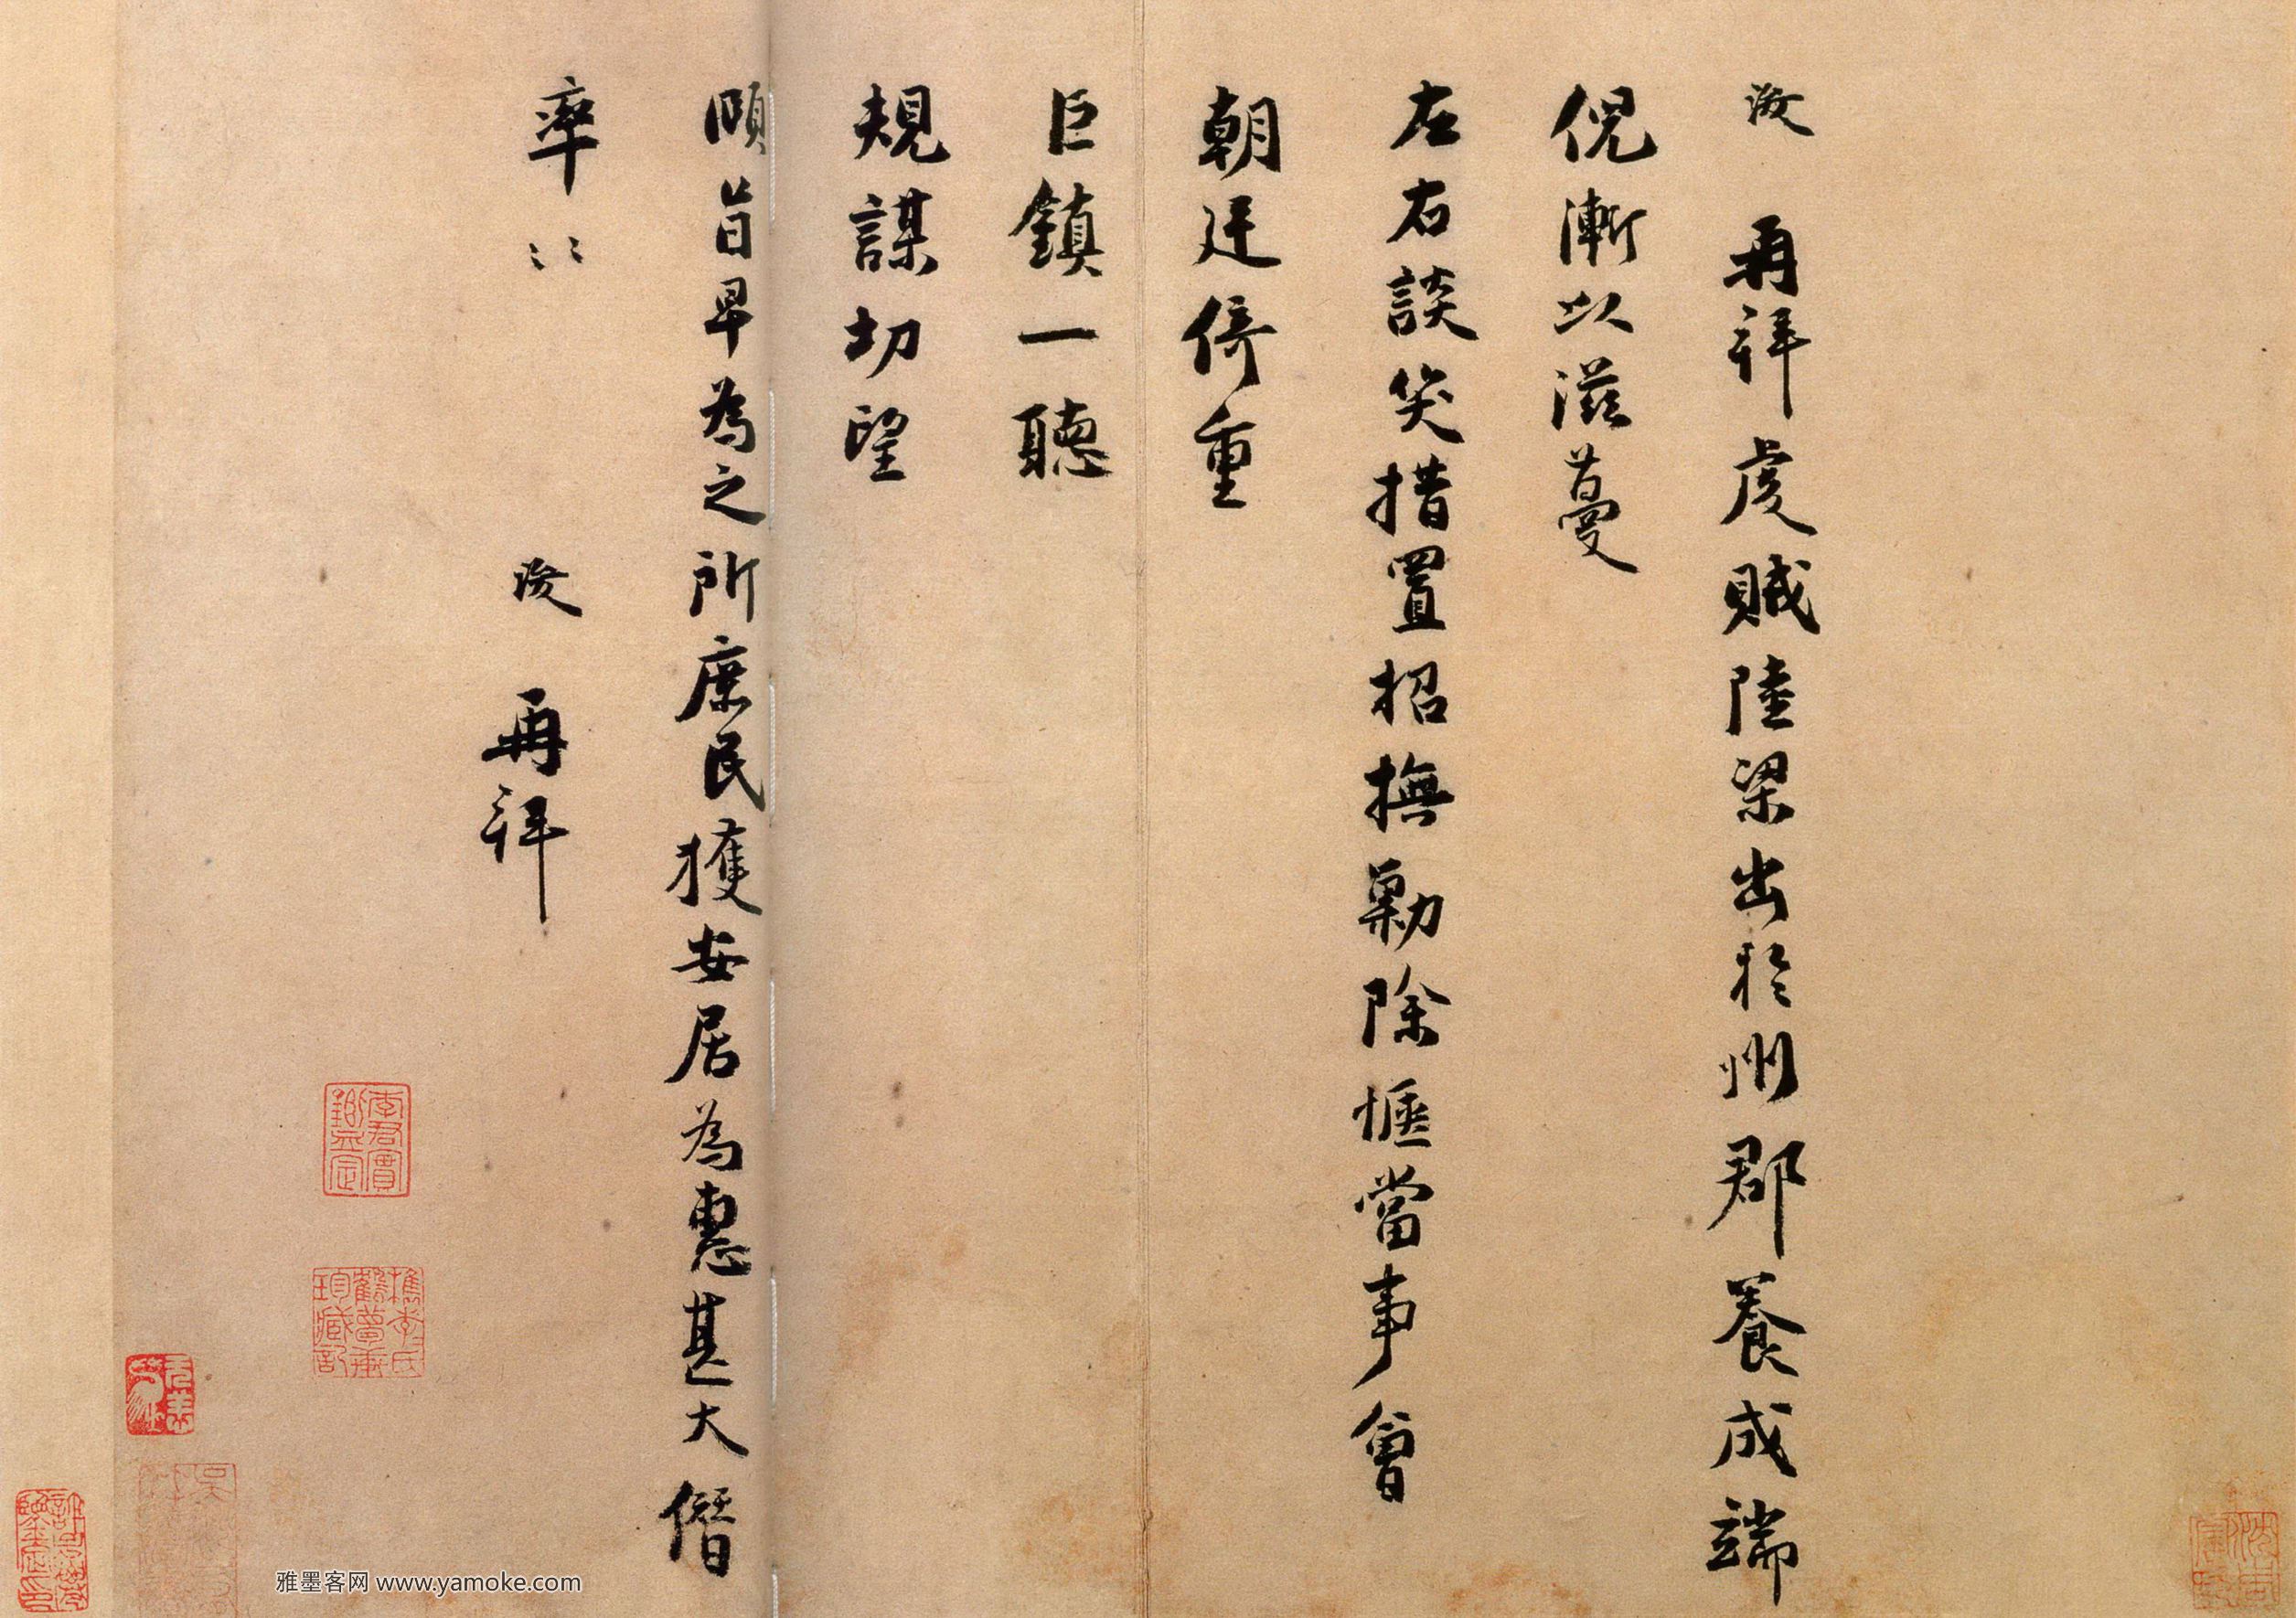 浚再拜虔賊陸梁出於州郡養成端
倪漸以滋蔓
左右談笑措置招撫勦除愜當事會
朝廷倚重
巨鎮一聽
規謀切望
頤旨早為之所庶民獲安居為惠甚大僭
率〻〻 浚再拜
李君實鑒定
檇李李氏鶴夢軒珍藏記
雅墨客网 www.yamoke.com